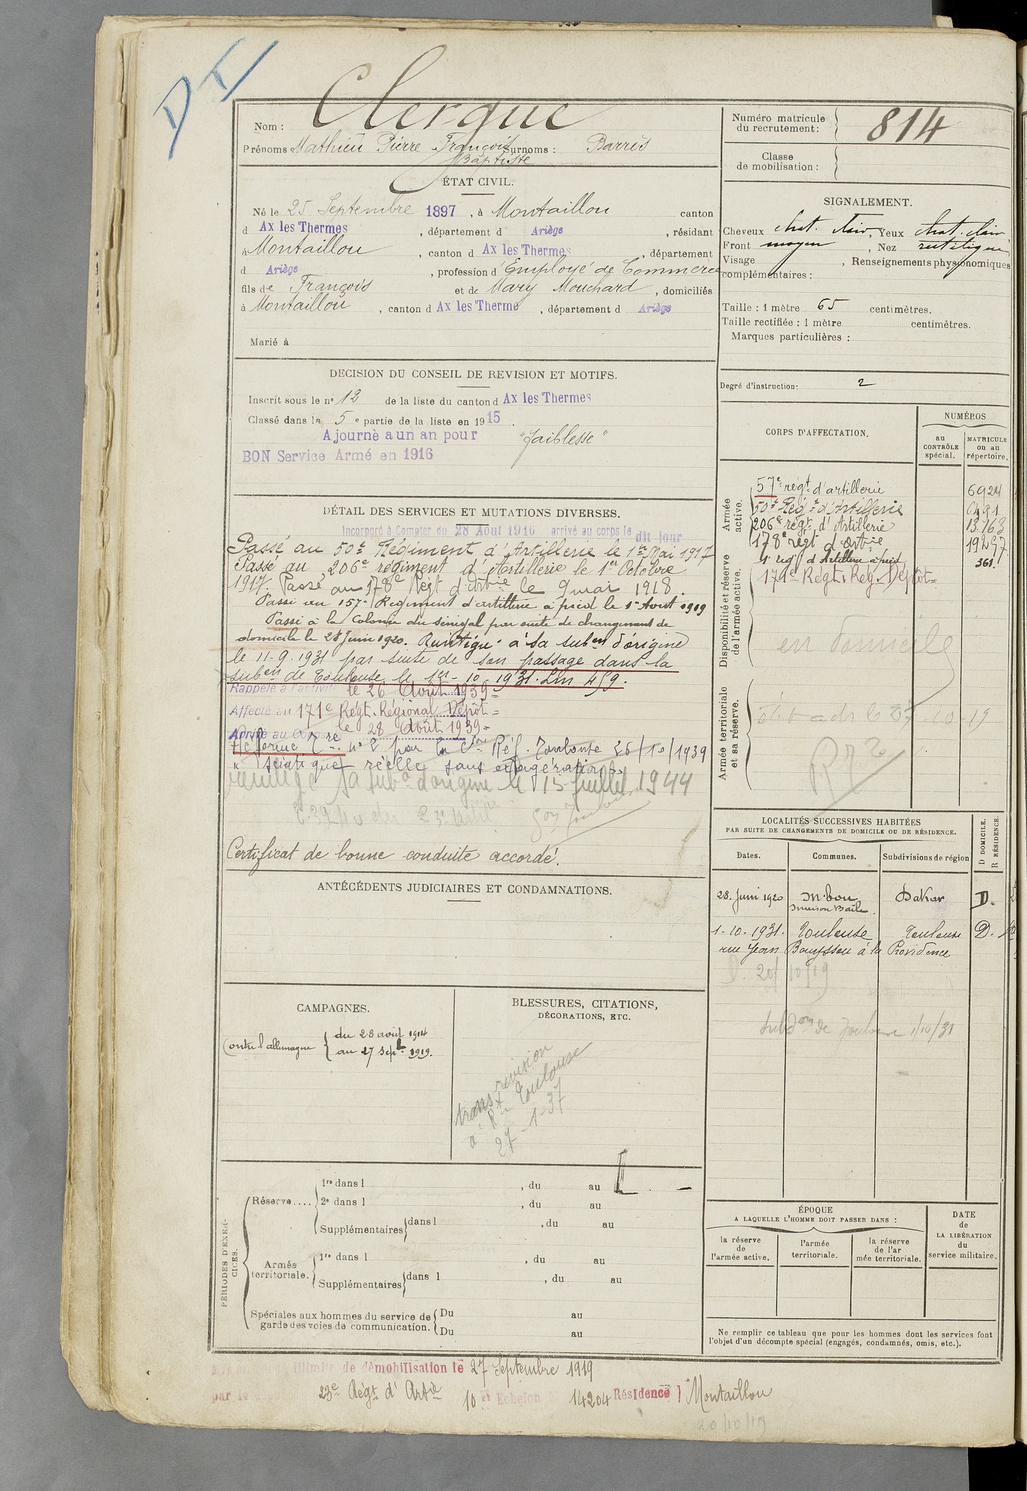 DI
Nom : Clergue
Prénoms : Mathieu Pierre François Baptiste Surnoms : Barrès
Numéro matricule du recrutement : 814
Classe de mobilisation :
ÉTAT CIVIL.
Né le 25 Septembre 1897, à Montaillou canton
d Ax les Thermes, département d Ariège, résidant
à Montaillou, canton d Ax les Thermes, département
d Ariège, profession d'Employé de Commerce
fils de François et de Mary Mouchard, domiciliés
à Montaillou, canton d Ax les Therme, département d Ariège
Marié à
SIGNALEMENT.
Cheveux chat. clair, Yeux chat. clair
Front moyen, Nez rectiligne
Visage , Renseignements physionomiques
complémentaires :
Taille : 1 mètre 65 centimètres.
Taille rectifiée : 1 mètre centimètres.
Marques particulières :
Degré d'instruction : 2
DECISION DU CONSEIL DE REVISION ET MOTIFS.
Inscrit sous le n° 12 de la liste du canton d Ax les Thermes
Classé dans la 5e partie de la liste en 1915.
Ajourné a un an pour "faiblesse"
BON Service Armé en 1916
DÉTAIL DES SERVICES ET MUTATIONS DIVERSES.
Incorporé à Compter du 28 Aout 1916 arrivé au corps le dit jour
Passé au 50e Régiment d'Artillerie le 1er Mai 1917
Passé au 206e régiment d'Artillerie le 1er Octobre
1917. Passé au 178e Régt d'Artrie le 9 mai 1918
Passé au 157e Régiment d'artillerie à pied le 1er Aout 1919
Passé à la Colonie du Sénégal par suite de changement de
domicile le 28 Juin 1920. Réintégré à sa subon d'origine
le 11-9-1931 par suite de son passage dans la
subon de Toulouse le 1er-10-1931. Ln 459.
Rappelé à l'activité le 26 Août 1939
Affecté au 171e Régt. Régional Dépôt
Arrivé au Corps le 28 Août 1939
Réformé n° 2 par la Con Réf. Toulouse 25/10/1939
"sciatique réelle sans exagération"
sa subon d'origine le 15 juillet 1944
Certificat de bonne conduite accordé.
CORPS D'AFFECTATION.
NUMÉROS
au CONTRÔLE spécial.
MATRICULE ou au répertoire.
Armée active.
57e regt d'artillerie 6924
50e Régt d'Artillerie
206e régt d'Artillerie 13763
178e regt d'artrie
regt d'Artillerie à pied 361
Disponibilité et réserve de l'armée active.
171e Régt. Rég. Dépôt
en domicile
Armée territoriale et sa réserve.
LOCALITÉS SUCCESSIVES HABITÉES
PAR SUITE DE CHANGEMENTS DE DOMICILE OU DE RÉSIDENCE.
Dates. Communes. Subdivisions de région D DOMICILE. R RÉSIDENCE.
28. Juin 1920 M'bou Dakar D.
1-10-1931. Toulouse Toulouse D.
rue Jean à la Providence
20/10/19
subdon de Toulouse 1/10/31
ANTÉCÉDENTS JUDICIAIRES ET CONDAMNATIONS.
CAMPAGNES.
Contre l'allemagne du 28 août
au 27 septbre 1919.
BLESSURES, CITATIONS,
DÉCORATIONS, ETC.
revision
Toulouse
27-1-37
PÉRIODES D'EXERCICES.
Réserve.... 1re dans l , du au
2e dans l , du au
Supplémentaires dans l , du au
Armée territoriale. 1re dans l , du au
Supplémentaires dans l , du au
Spéciales aux hommes du service de garde des voies de communication. Du au
Du au
ÉPOQUE
A LAQUELLE L'HOMME DOIT PASSER DANS :
la réserve de l'armée active.
l'armée territoriale.
la réserve de l'armée territoriale.
DATE de LA LIBÉRATION du service militaire.
Ne remplir ce tableau que pour les hommes dont les services font
l'objet d'un décompte spécial (engagés, condamnés, omis, etc.).
illimité de démobilisation le 27 Septembre 1919
par le 23e Régt d'Artie 10e Echelon 14204 Résidence Montaillou
20/10/19